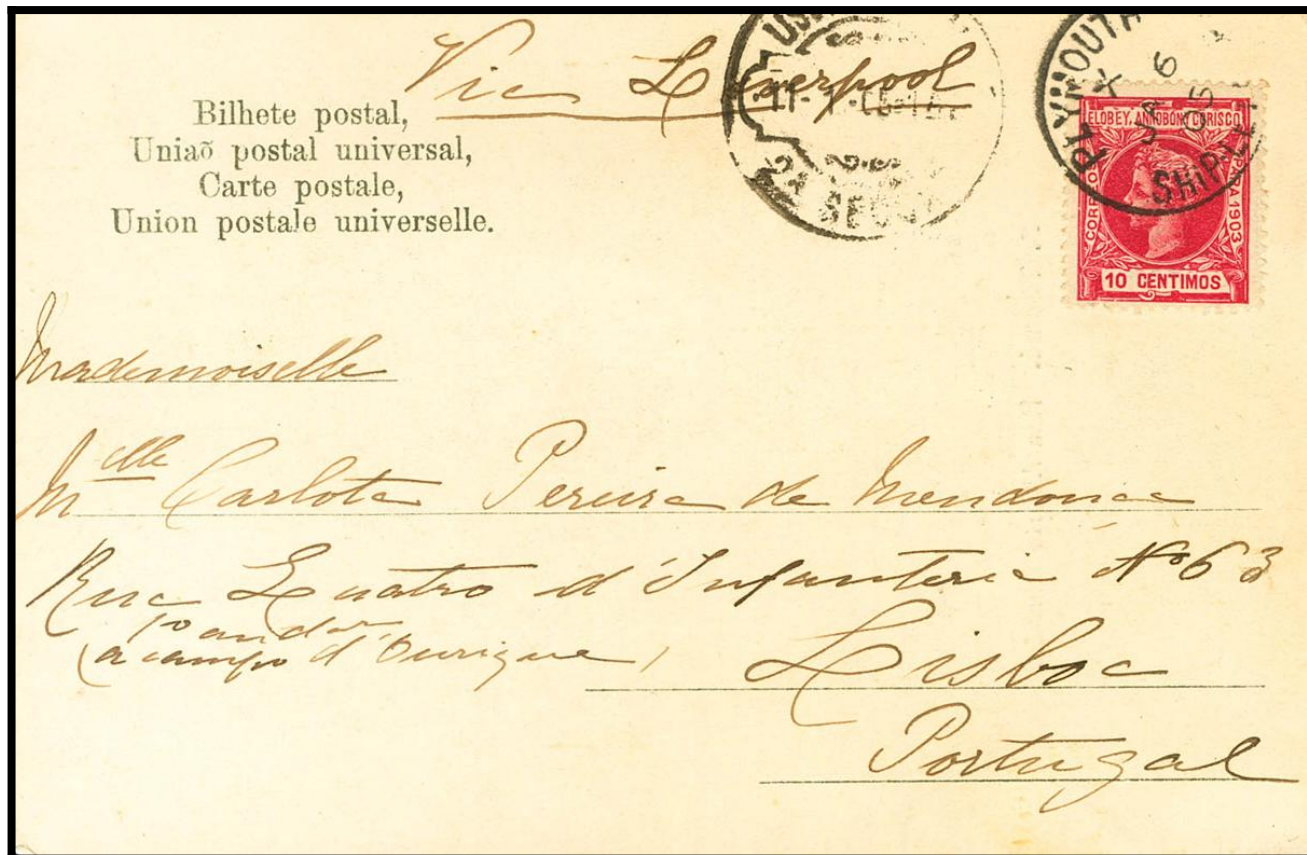 Via Liverpool
Bilhete postal,
Uniaõ postal universal,
Carte postale,
Union postale universelle.
PLYMOUTH
X
JA 6
05
SHIP
ELOBEY, ANNOBÓN Y CORISCO
CORREOS
1903
10 CENTIMOS
Mademoiselle
Mlle Carlota Pereira de Mendonca
Rua Quatro d'Infanteria No 63
1o andar
(a campo d'Ourique)
Lisboa
Portugal